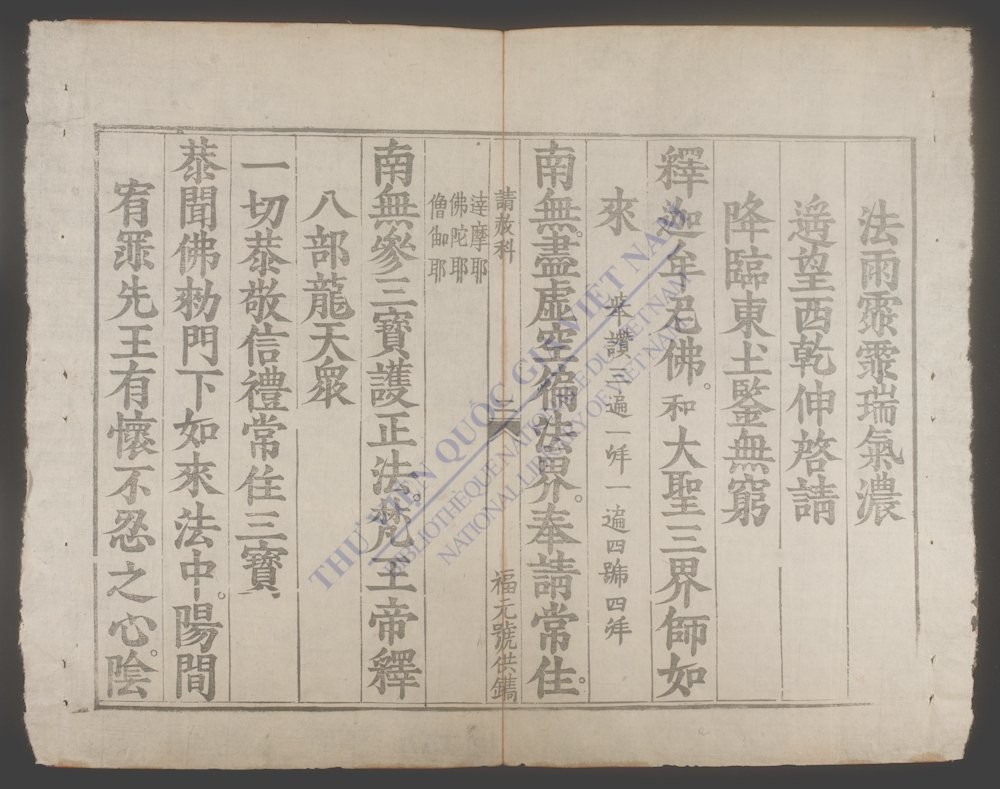 法雨霡霂瑞氣濃
遙望西乾伸啓請
降臨東土鑒無窮
釋迦牟尼佛。和大聖三界師如
來 举讚三遍一𠵌一遍四𠵌四𠵌
南無。盡虛空徧法界。奉請常住。
請赦科 二 福元號供鐫
達摩耶
佛陀耶
僧伽耶
南無參三寶護正法。梵王帝釋
八部龍天眾
一切恭敬信禮常住三寶
恭聞佛勑門下如來法中。陽間
宥罪先王有懷不忍之心。陰
THƯ VIỆN QUỐC GIA VIỆT NAM
BIBLIOTHÈQUE NATIONALE DU VIET NAM
NATIONAL LIBRARY OF VIET NAM